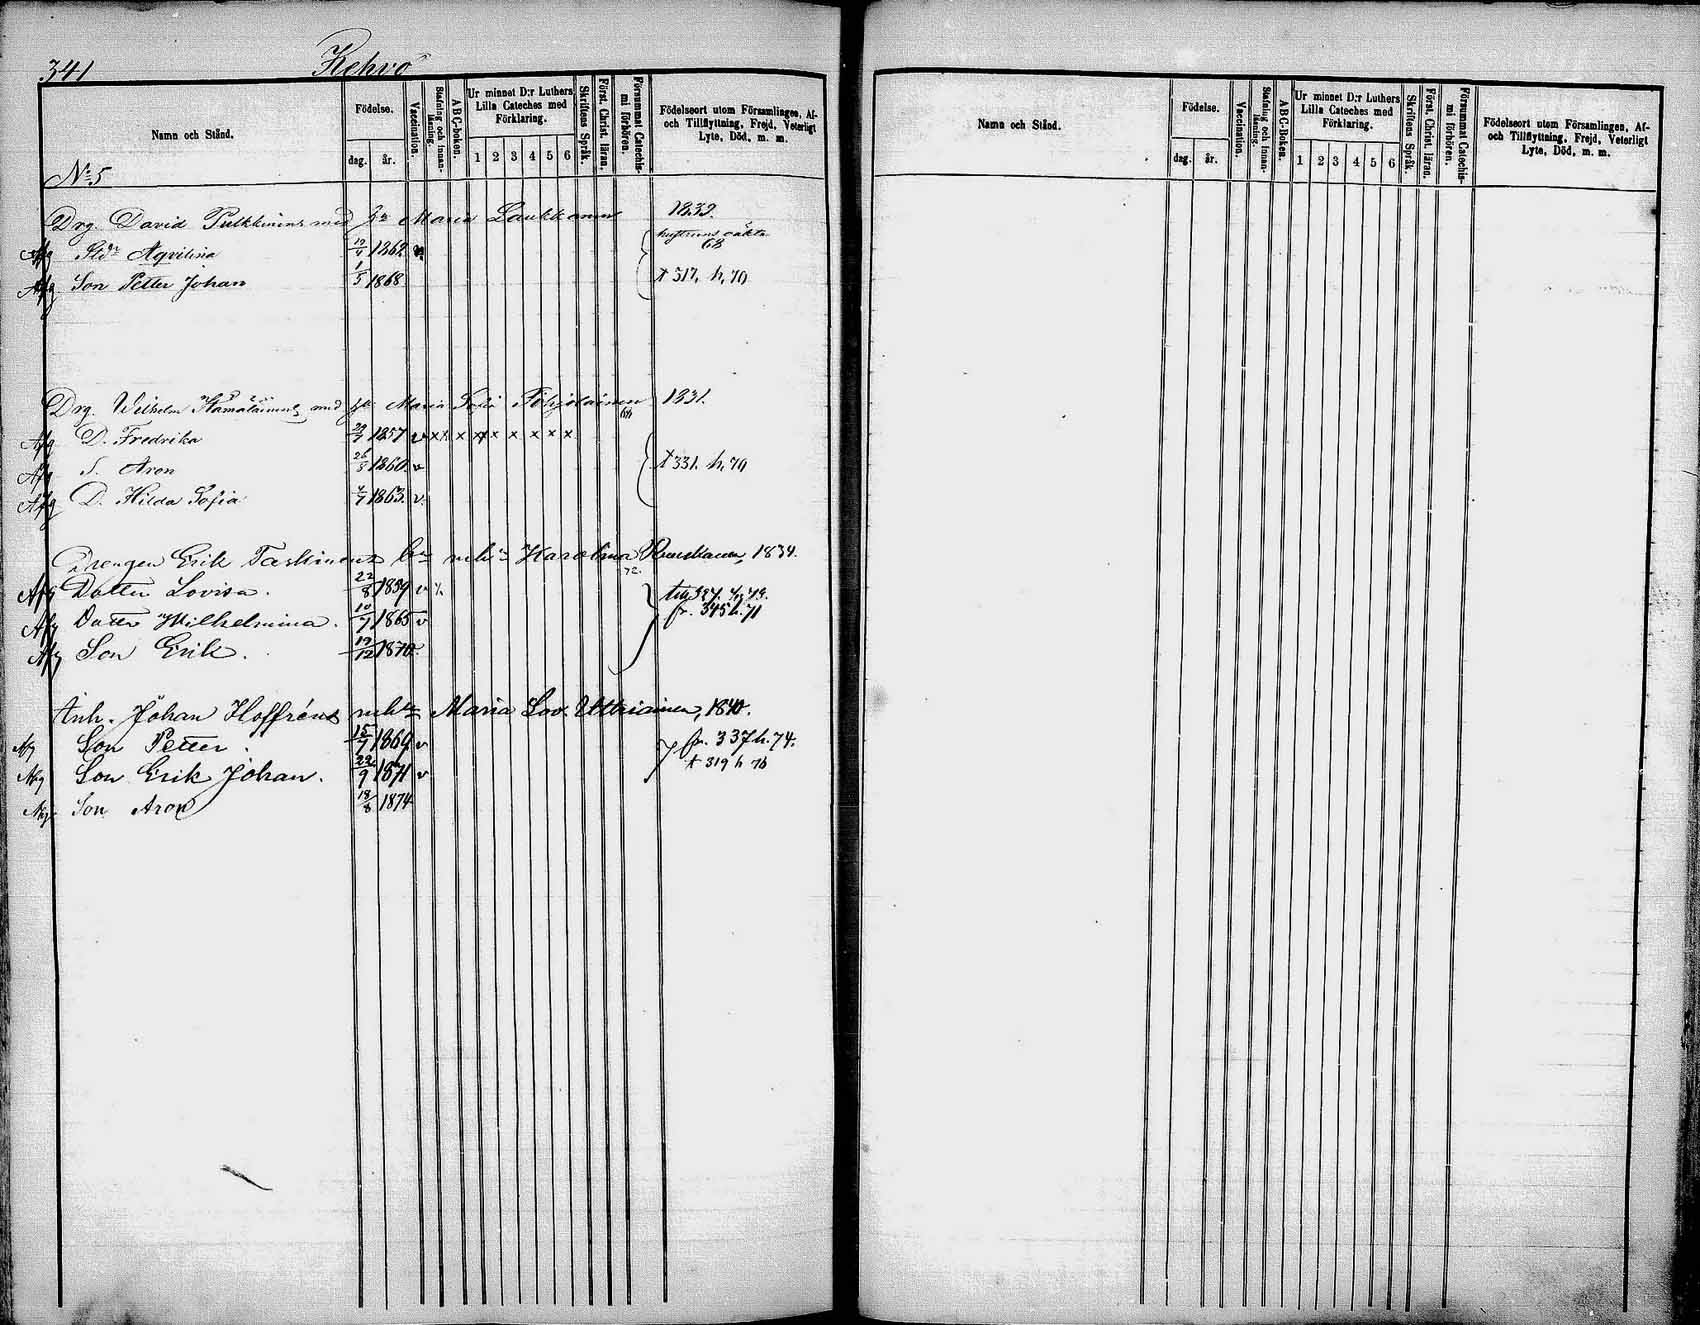 341 Kehvo
Namn och Stånd.
Födelse.
dag. år.
Vaccination.
Stafning och Innanläsning.
A B C-boken.
Ur minnet D:r Luthers Lilla Cateches med Förklaring.
1 2 3 4 5 6
Skriftens Språk.
Först. Christ. läran.
Försummat Catechismi förhören.
Födelseort utom Församlingen, Af- och Tillflyttning, Frejd, Veterligt Lyte, Död, m. m.
N:5
Drg. David Pulkkinens med Maria Laukkanen 1839.
Afg Aqvilina 19/4 1862 v 68
Afg Son Petter Johan 1/5 1868 t 317, h, 70
Drg. Wilhelm Hämäläinens med Maria Sofia Pohjolainen 1831.
Afg D. Fredrika 29/7 1857 v x x x x x x x x x
Afg S. Aron 26/8 1860 v t 331. h, 70
Afg D. Hilda Sofia 4/7 1863. v.
Drengen Erik Taskinens Karolina 1834.
72.
Afg Dotter Lovisa. 22/8 1859 v
Afg Dotter Wilhelmina. 10/7 1865 v fr. 345 h. 71
Afg Son Erik. 19/12 1870
Inh. Johan Hoffréns Maria Lov. 1840.
Afg Son Petter. 15/7 1869 v fr. 337 h. 74.
Afg Son Erik Johan. 22/9 1871 v t 319 h 76
Afg Son Aron 18/8 1874
Namn och Stånd.
Födelse.
dag. år.
Vaccination.
Stafning och Innanläsning.
A B C-Boken.
Ur minnet D:r Luthers Lilla Cateches med Förklaring.
1 2 3 4 5 6
Skriftens Språk.
Först. Christ. läran.
Försummat Catechismi förhören.
Födelseort utom Församlingen, Af- och Tillflyttning, Frejd, Veterligt Lyte, Död, m. m.